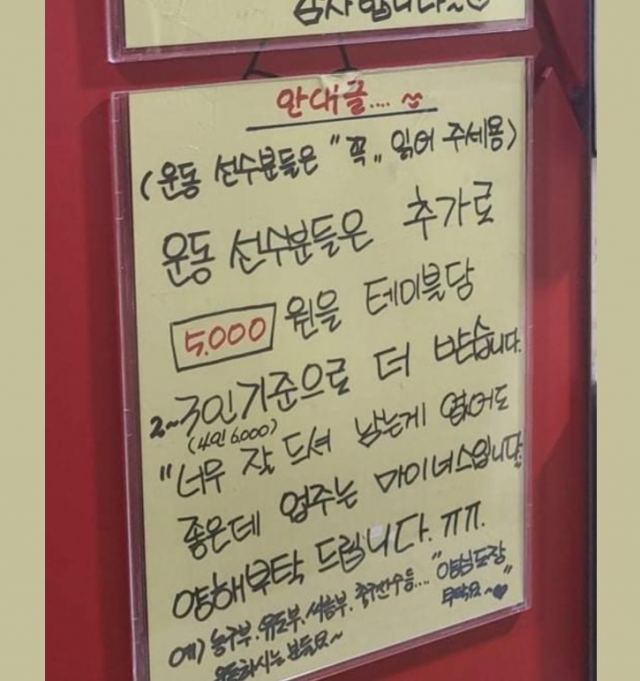 감사합니다~
안내글....
(운동 선수분들은 "꼭" 읽어 주세용)
운동 선수분들은 추가로
5.000 원을 테이블당
2~3인기준으로 더 받습니다.
(4인 6.000)
"너무 잘 드셔 남는게 없어도
좋은데 업주는 마이너스입니다.
양해부탁 드립니다. ㅠㅠ.
예) 농구부. 유도부. 씨름부. 축구선수등... "양심포장"
운동하시는 분들요~ 부탁요~♥